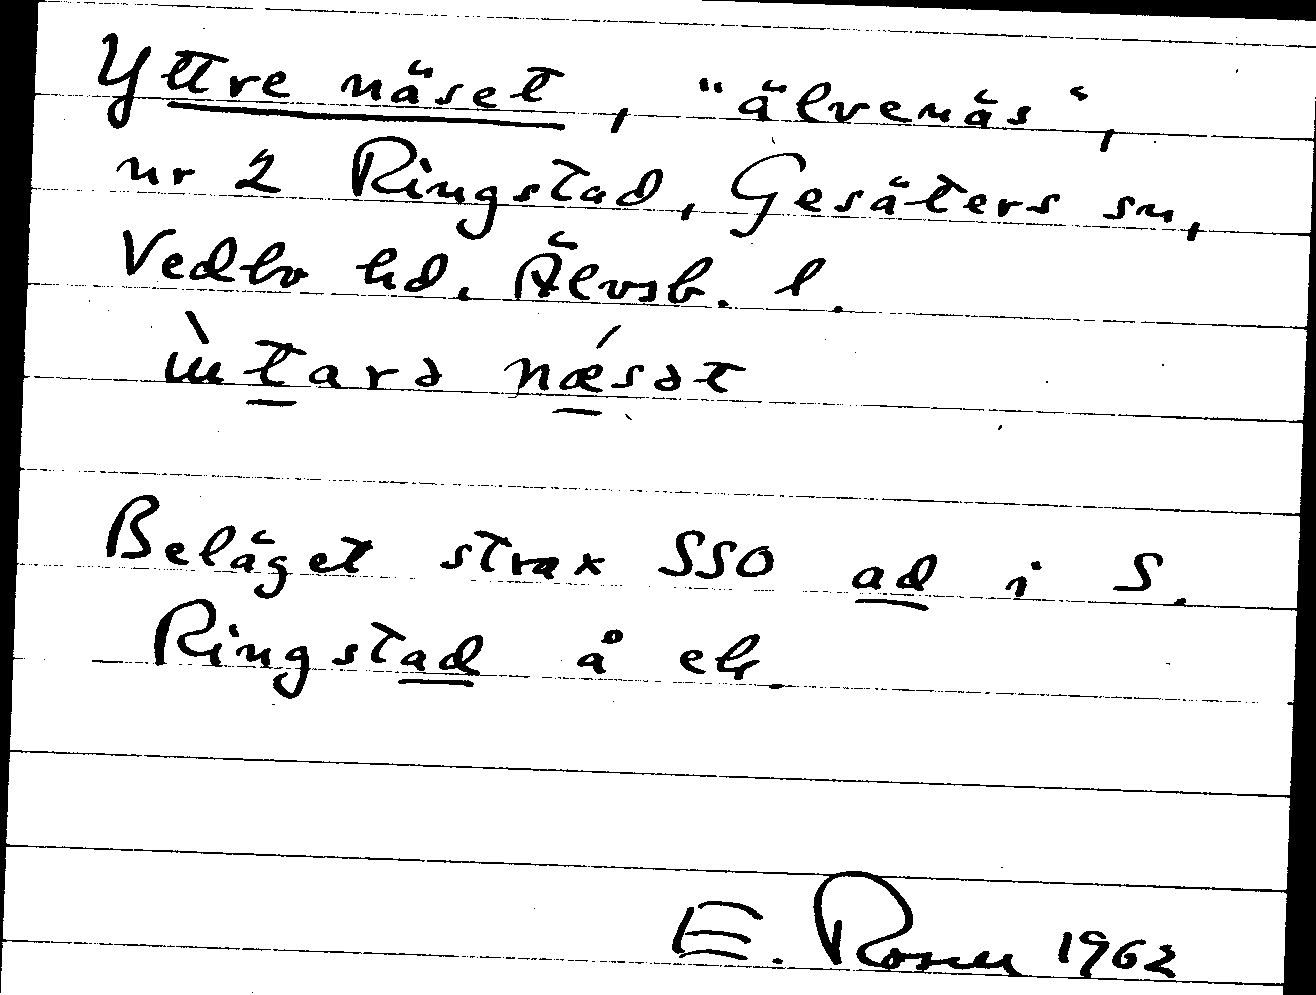 Yttre näset, "älvenäs",
nr 2 Ringstad, Gesäters sn,
Vedbo hd. Älvsb. l.
ùtarə nǽsət
Beläget strax SSO ad i S.
Ringstad å ek.
E. Rosell 1962